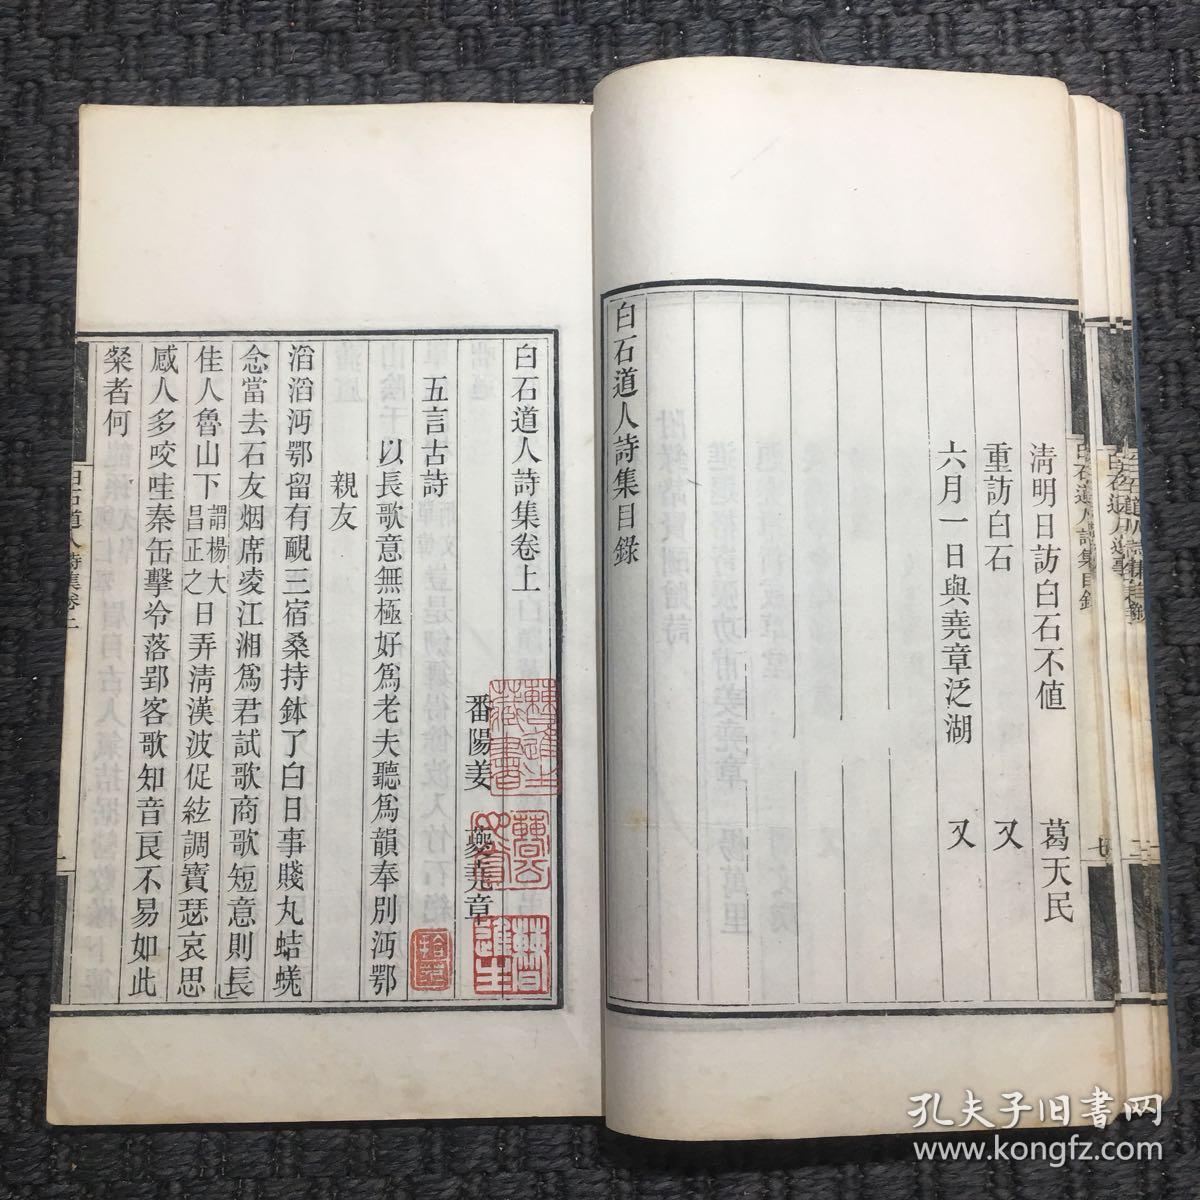 清明日訪白石不値 葛天民
重訪白石 又
六月一日與堯章泛湖 又
白石道人詩集目錄
白石道人詩集目錄
七
白石道人詩集卷上
番陽姜 夔堯章
五言古詩
以長歌意無極好爲老夫聽爲韻奉別沔鄂
親友
滔滔沔鄂留有靦三宿桑持鉢了白日事賤丸蛣蜣
念當去石友烟席凌江湘爲君試歌商歌短意則長
佳人魯山下謂楊大昌正之日弄清漢波促絃調寶瑟哀思
感人多咬哇秦缶擊冷落郢客歌知音良不易如此
粲者何
白石道人詩集卷上
一
孔夫子旧书网
www.kongfz.com